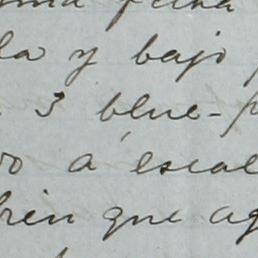 la y bajo
3 blue-p
á escal
bien que ag